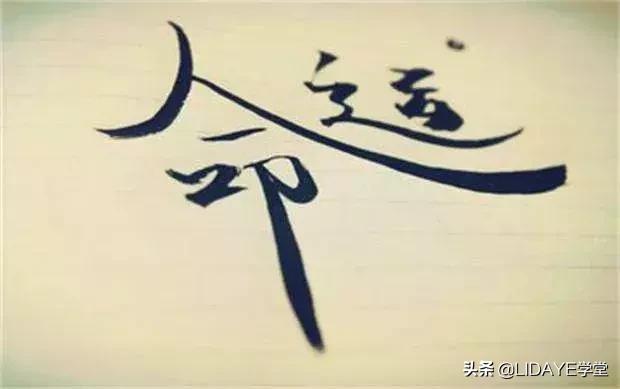 命运
头条 @LIDAYE学堂